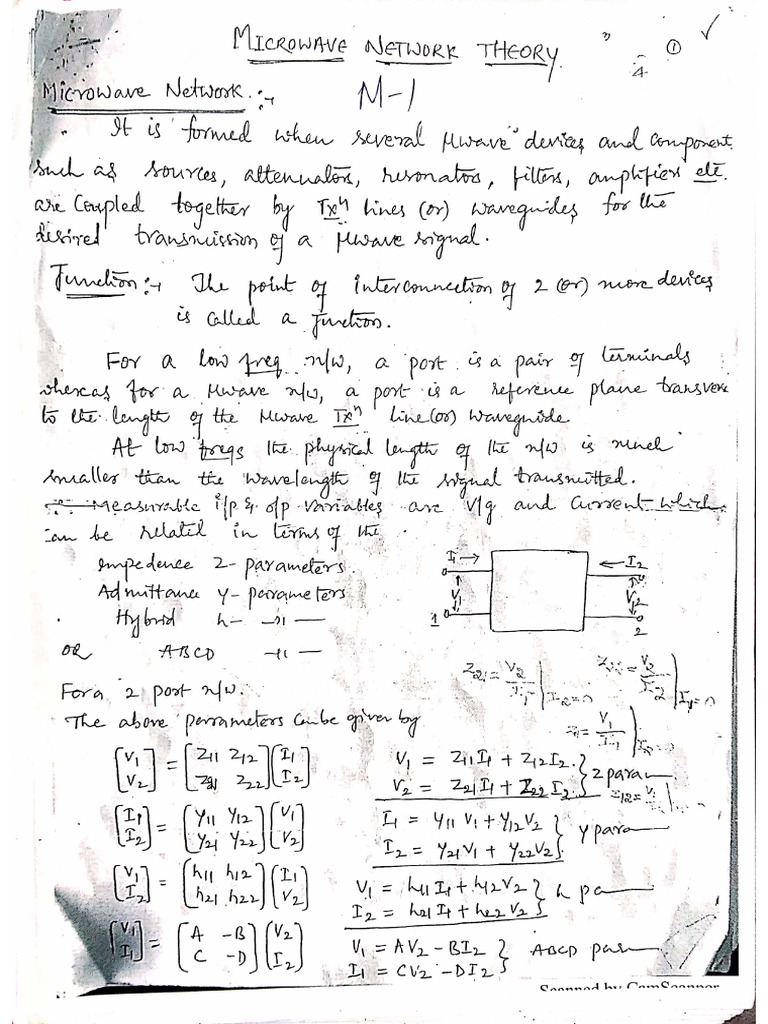 MICROWAVE NETWORK THEORY.
①
4
Microwave Network :-
M-1
It is formed when several μwave devices and component
such as sources, attenuators, resonators, filters, amplifiers etc.
are coupled together by Txⁿ lines (or) waveguides for the
desired transmission of a μwave signal.
Junction :- The point of interconnection of 2 (or) more devices
is called a junction.
For a low freq n/w, a port is a pair of terminals
whereas for a μwave n/w, a port is a reference plane transverse
to the length of the μwave Txⁿ line (or) waveguide
At low freqs the physical length of the n/w is much
smaller than the wavelength of the signal transmitted.
Measurable i/p & o/p variables are v/g and current which
can be related in terms of the
Impedence Z - parameters.
Admittance y - parameters
Hybrid h- -〃-
OR ABCD -〃-
I1 → ← I2
V1 V2
1 2
Z21 = V2/I1 | I2=0
Z22 = V2/I2 | I1=0
For a 2 port n/w.
The above parrameters can be given by
V1/I1 | I2=0
[V1 V2] = [Z11 Z12 Z21 Z22] [I1 I2] V1 = Z11 I1 + Z12 I2
V2 = Z21 I1 + Z22 I2 } Z para
Z12 = V1
[I1 I2] = [Y11 Y12 Y21 Y22] [V1 V2] I1 = Y11 V1 + Y12 V2
I2 = Y21 V1 + Y22 V2 } y para
[V1 I2] = [h11 h12 h21 h22] [I1 V2] V1 = h11 I1 + h12 V2
I2 = h21 I1 + h22 V2 } h pa
[V1 I1] = [A -B C -D] [V2 I2] V1 = AV2 - BI2
I1 = CV2 - DI2 } ABCD para
Scanned by CamScanner